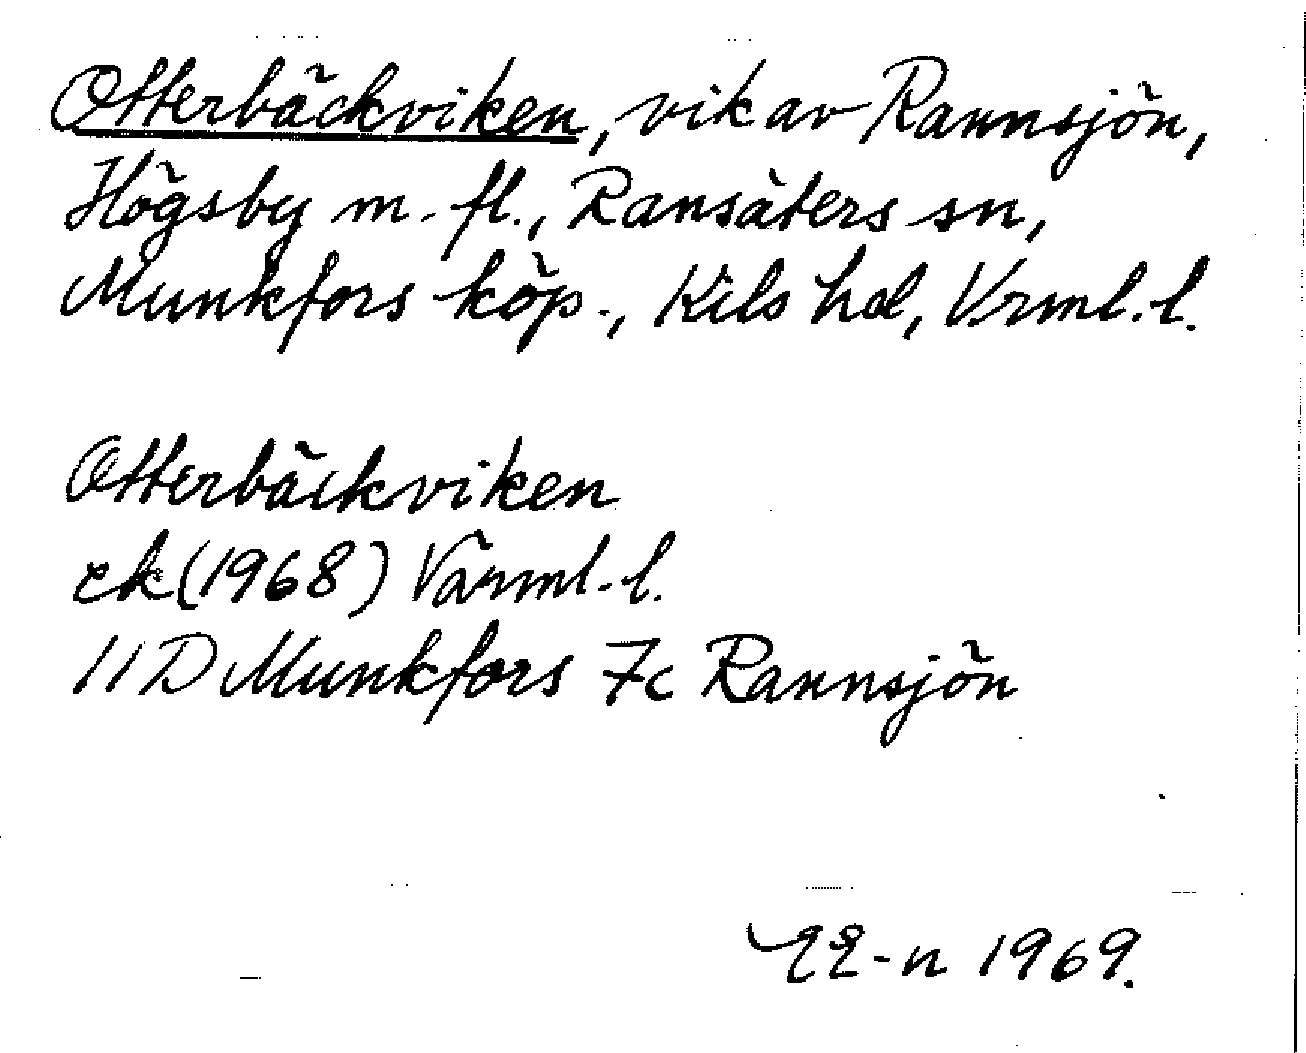 Otterbäckviken, vik av Rannsjön,
Högsby m. fl., Ransäters sn,
Munkfors köp., Kils hd, Vrml. l.
Otterbäckviken
ek (1968) Värml. l.
11 D Munkfors 7c Rannsjön
1969.